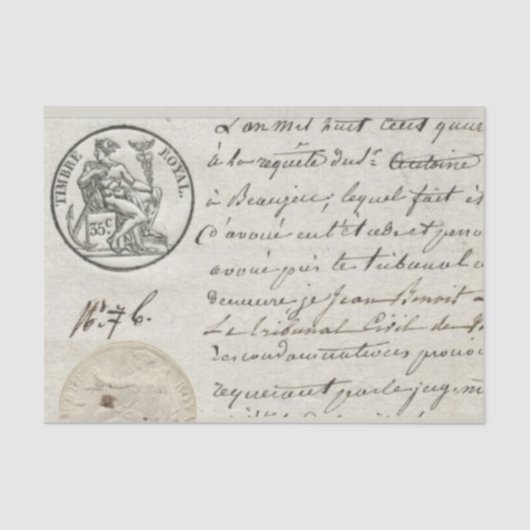 TIMBRE ROYAL.
35c
No. 76.
L'an mil huit cent quar
à la requête du Sr. Antoine
à Beaujeu, lequel fait é
d'avoué en et et pers
avoué près le tribunal
demeure je Jean Benoit
Le tribunal Civil de
des condamnations pronon
requerant par le jug m
ROYA